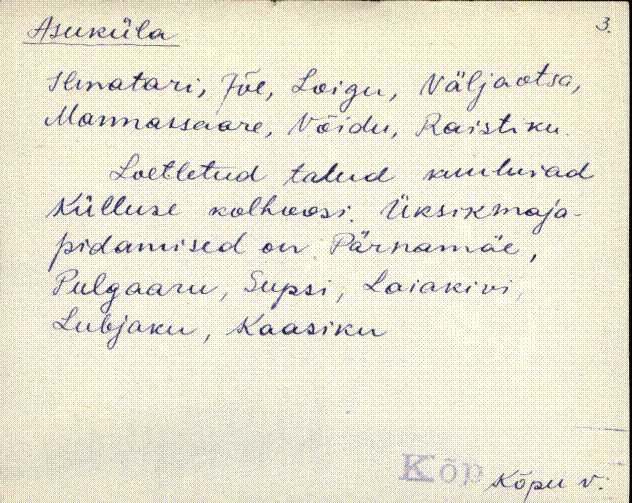 Asuküla
3.
Ilmatari, Jõe, Loigu, Väljaotsa,
Mannassaare, Võidu, Raistiku.
Loetletud talud kuuluvad
Külluse kolhoosi. Üksikmaja-
pidamised on Pärnamäe,
Pulgaaru, Supsi, Laiakivi,
Lubjaku, Kaasiku
Kõp
Kõpu v.